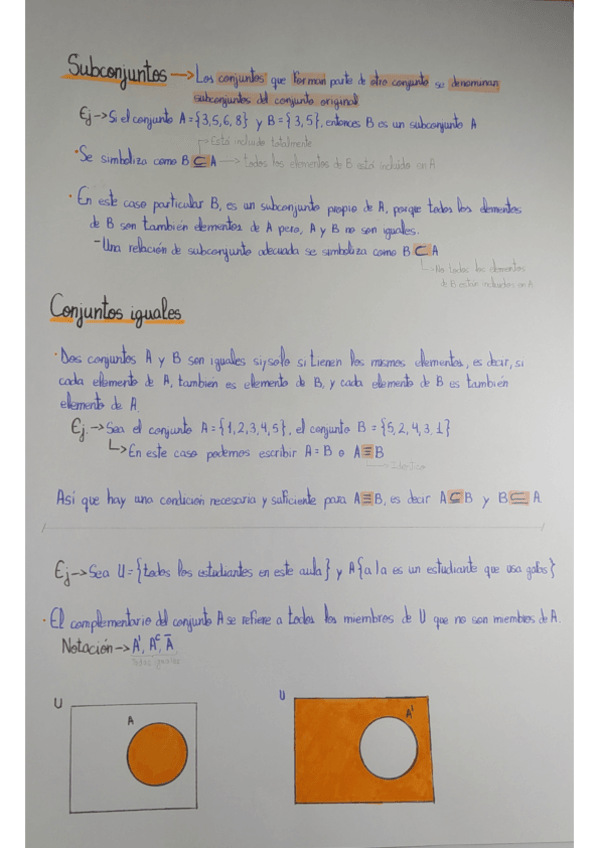 Subconjuntos → Los conjuntos que forman parte de otro conjunto se denominan
subconjuntos del conjunto original
Ej → Si el conjunto A = {3,5,6,8} y B = {3,5}, entonces B es un subconjunto A
→ Está incluido totalmente
• Se simboliza como B ⊆ A → todos los elementos de B está incluido en A
• En este caso particular B, es un subconjunto propio de A, porque todos los elementos
de B son también elementos de A pero, A y B no son iguales.
- Una relación de subconjunto adecuada se simboliza como B ⊂ A
→ No todos los elementos
de B están incluidos en A
Conjuntos iguales
• Dos conjuntos A y B son iguales si y solo si tienen los mismos elementos, es decir, si
cada elemento de A, tambien es elemento de B, y cada elemento de B es también
elemento de A.
Ej. → Sea el conjunto A = {1,2,3,4,5}, el conjunto B = {5,2,4,3,1}
↳ En este caso podemos escribir A = B o A ≡ B
→ Idéntico
Así que hay una condición necesaria y suficiente para A ≡ B, es decir A ⊆ B y B ⊆ A
Ej → Sea U = {todos los estudiantes en este aula} y A {a la es un estudiante que usa gafas}
• El complementario del conjunto A se refiere a todos los miembros de U que no son miembros de A.
Notación → A', Aᶜ, Ā
Todos iguales
U
A
U
A'